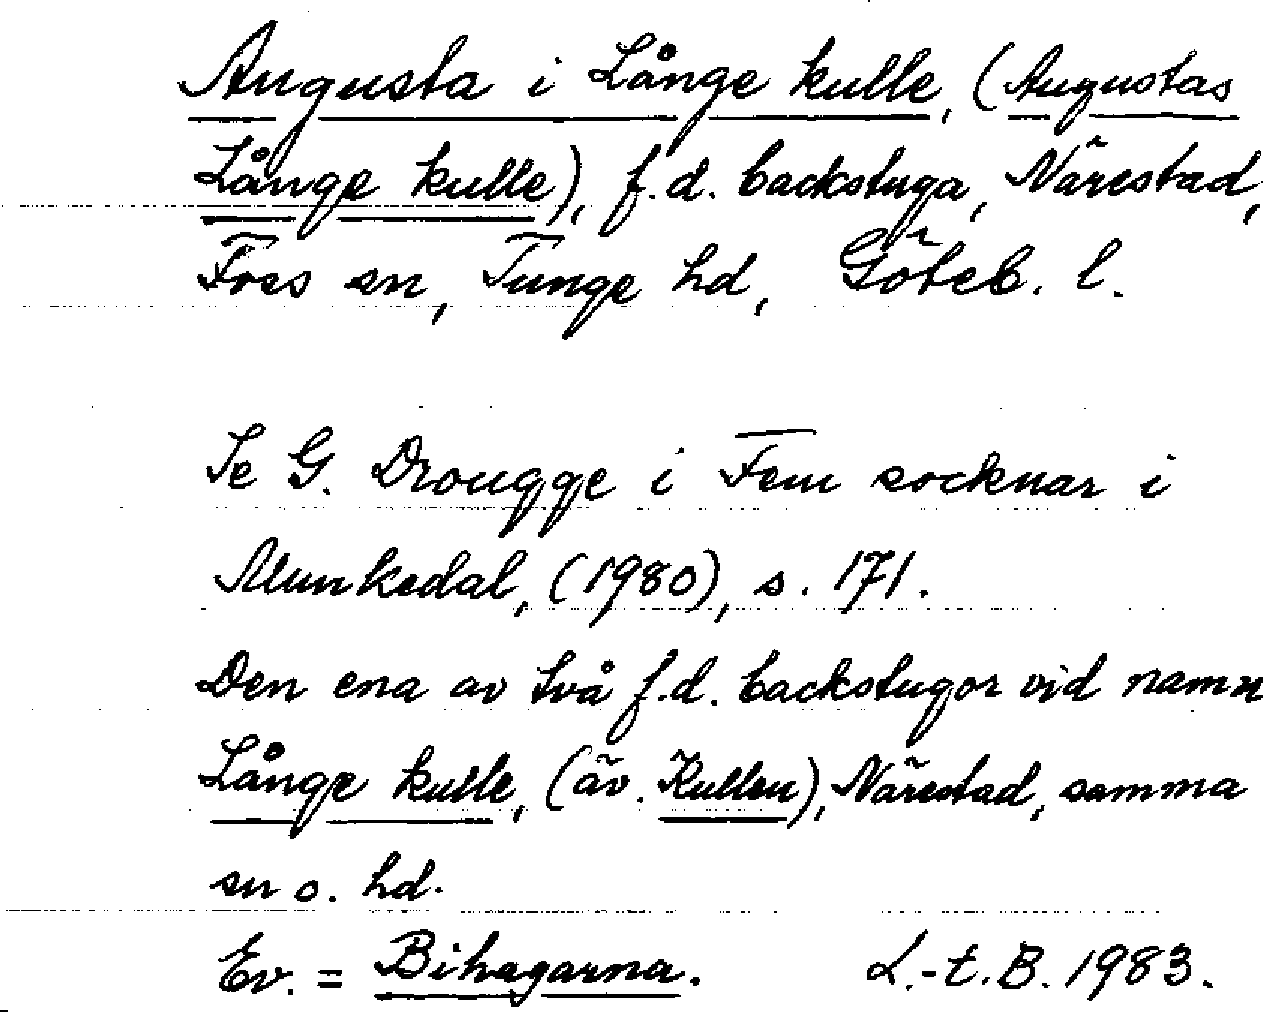 Augusta i Långe kulle, (Augustas
Långe kulle), f.d. backstuga, Närestad,
Foss sn, Tunge hd, Göteb. l.
Se G. Drougge i Fem socknar i
Munkedal, (1980), s. 171.
Den ena av två f.d. backstugor vid namn
Långe kulle, (äv. Kullen), Närestad, samma
sn o. hd.
Ev. = Bihagarna. L.-t.B. 1983.